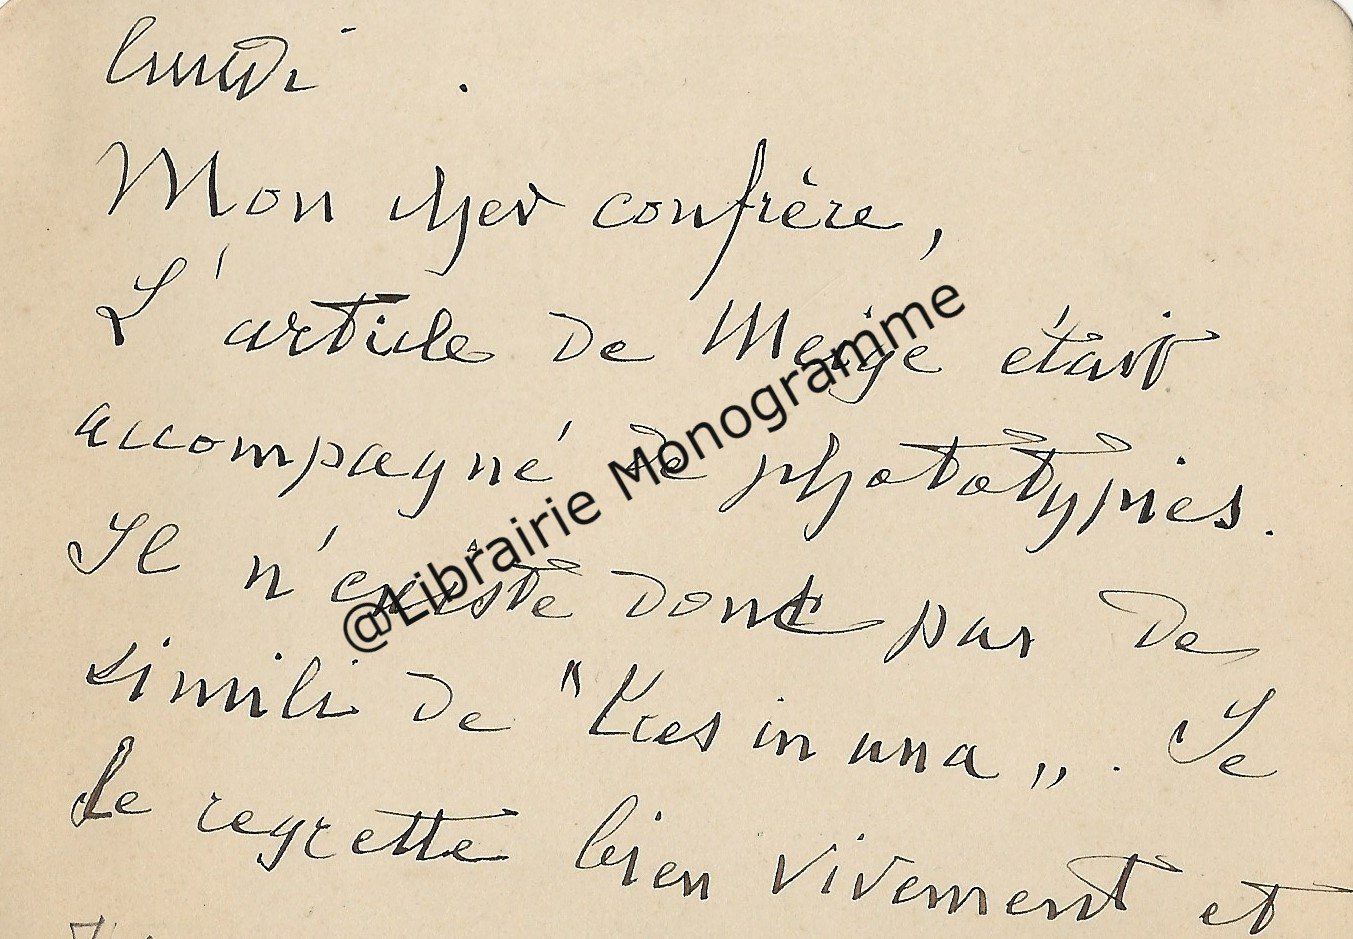 lundi.
Mon cher confrère,
L'article de Meige était
accompagné de phototypies.
Il n'existe donc pas de
simili de "Kres in una". Je
le regrette bien vivement et
@Librairie Monogramme